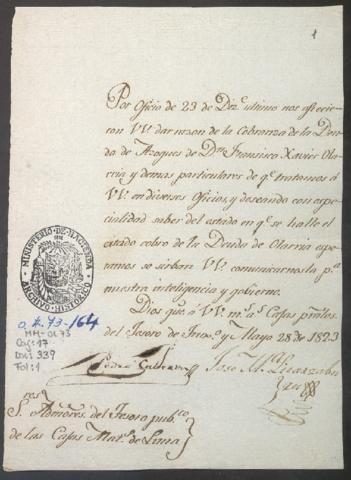 1
Por Oficio de 23 de Diz.e ultimo nos ofrecie-
ron VV. dar razon de la Cobranza de la Deu-
da de Azogues de Dn. Francisco Xavier Ola-
rria y demas particulares de q.e tratamos á
VV. en diversos Oficios, y deseando con espe-
cialidad saber del estado en q.e se halle el
citado cobro de la Deuda de Olarria espe-
ramos se sirban VV. comunicarnosla p.a
nuestra inteligencia y gobierno.
Dios gue á VV. m.s a.s Casas prales.
del Tesoro de y Mayo 28 de 1823
Pedro José M.l
S.res Admores. del Tesoro pub.co
de las Casas Mat.s de Lima
MINISTERIO·DE·HACIENDA
ARCHIVO HISTÓRICO
O.L. 73-164
MH-OL73
Caj: 17
Doc: 339
Fol: 1